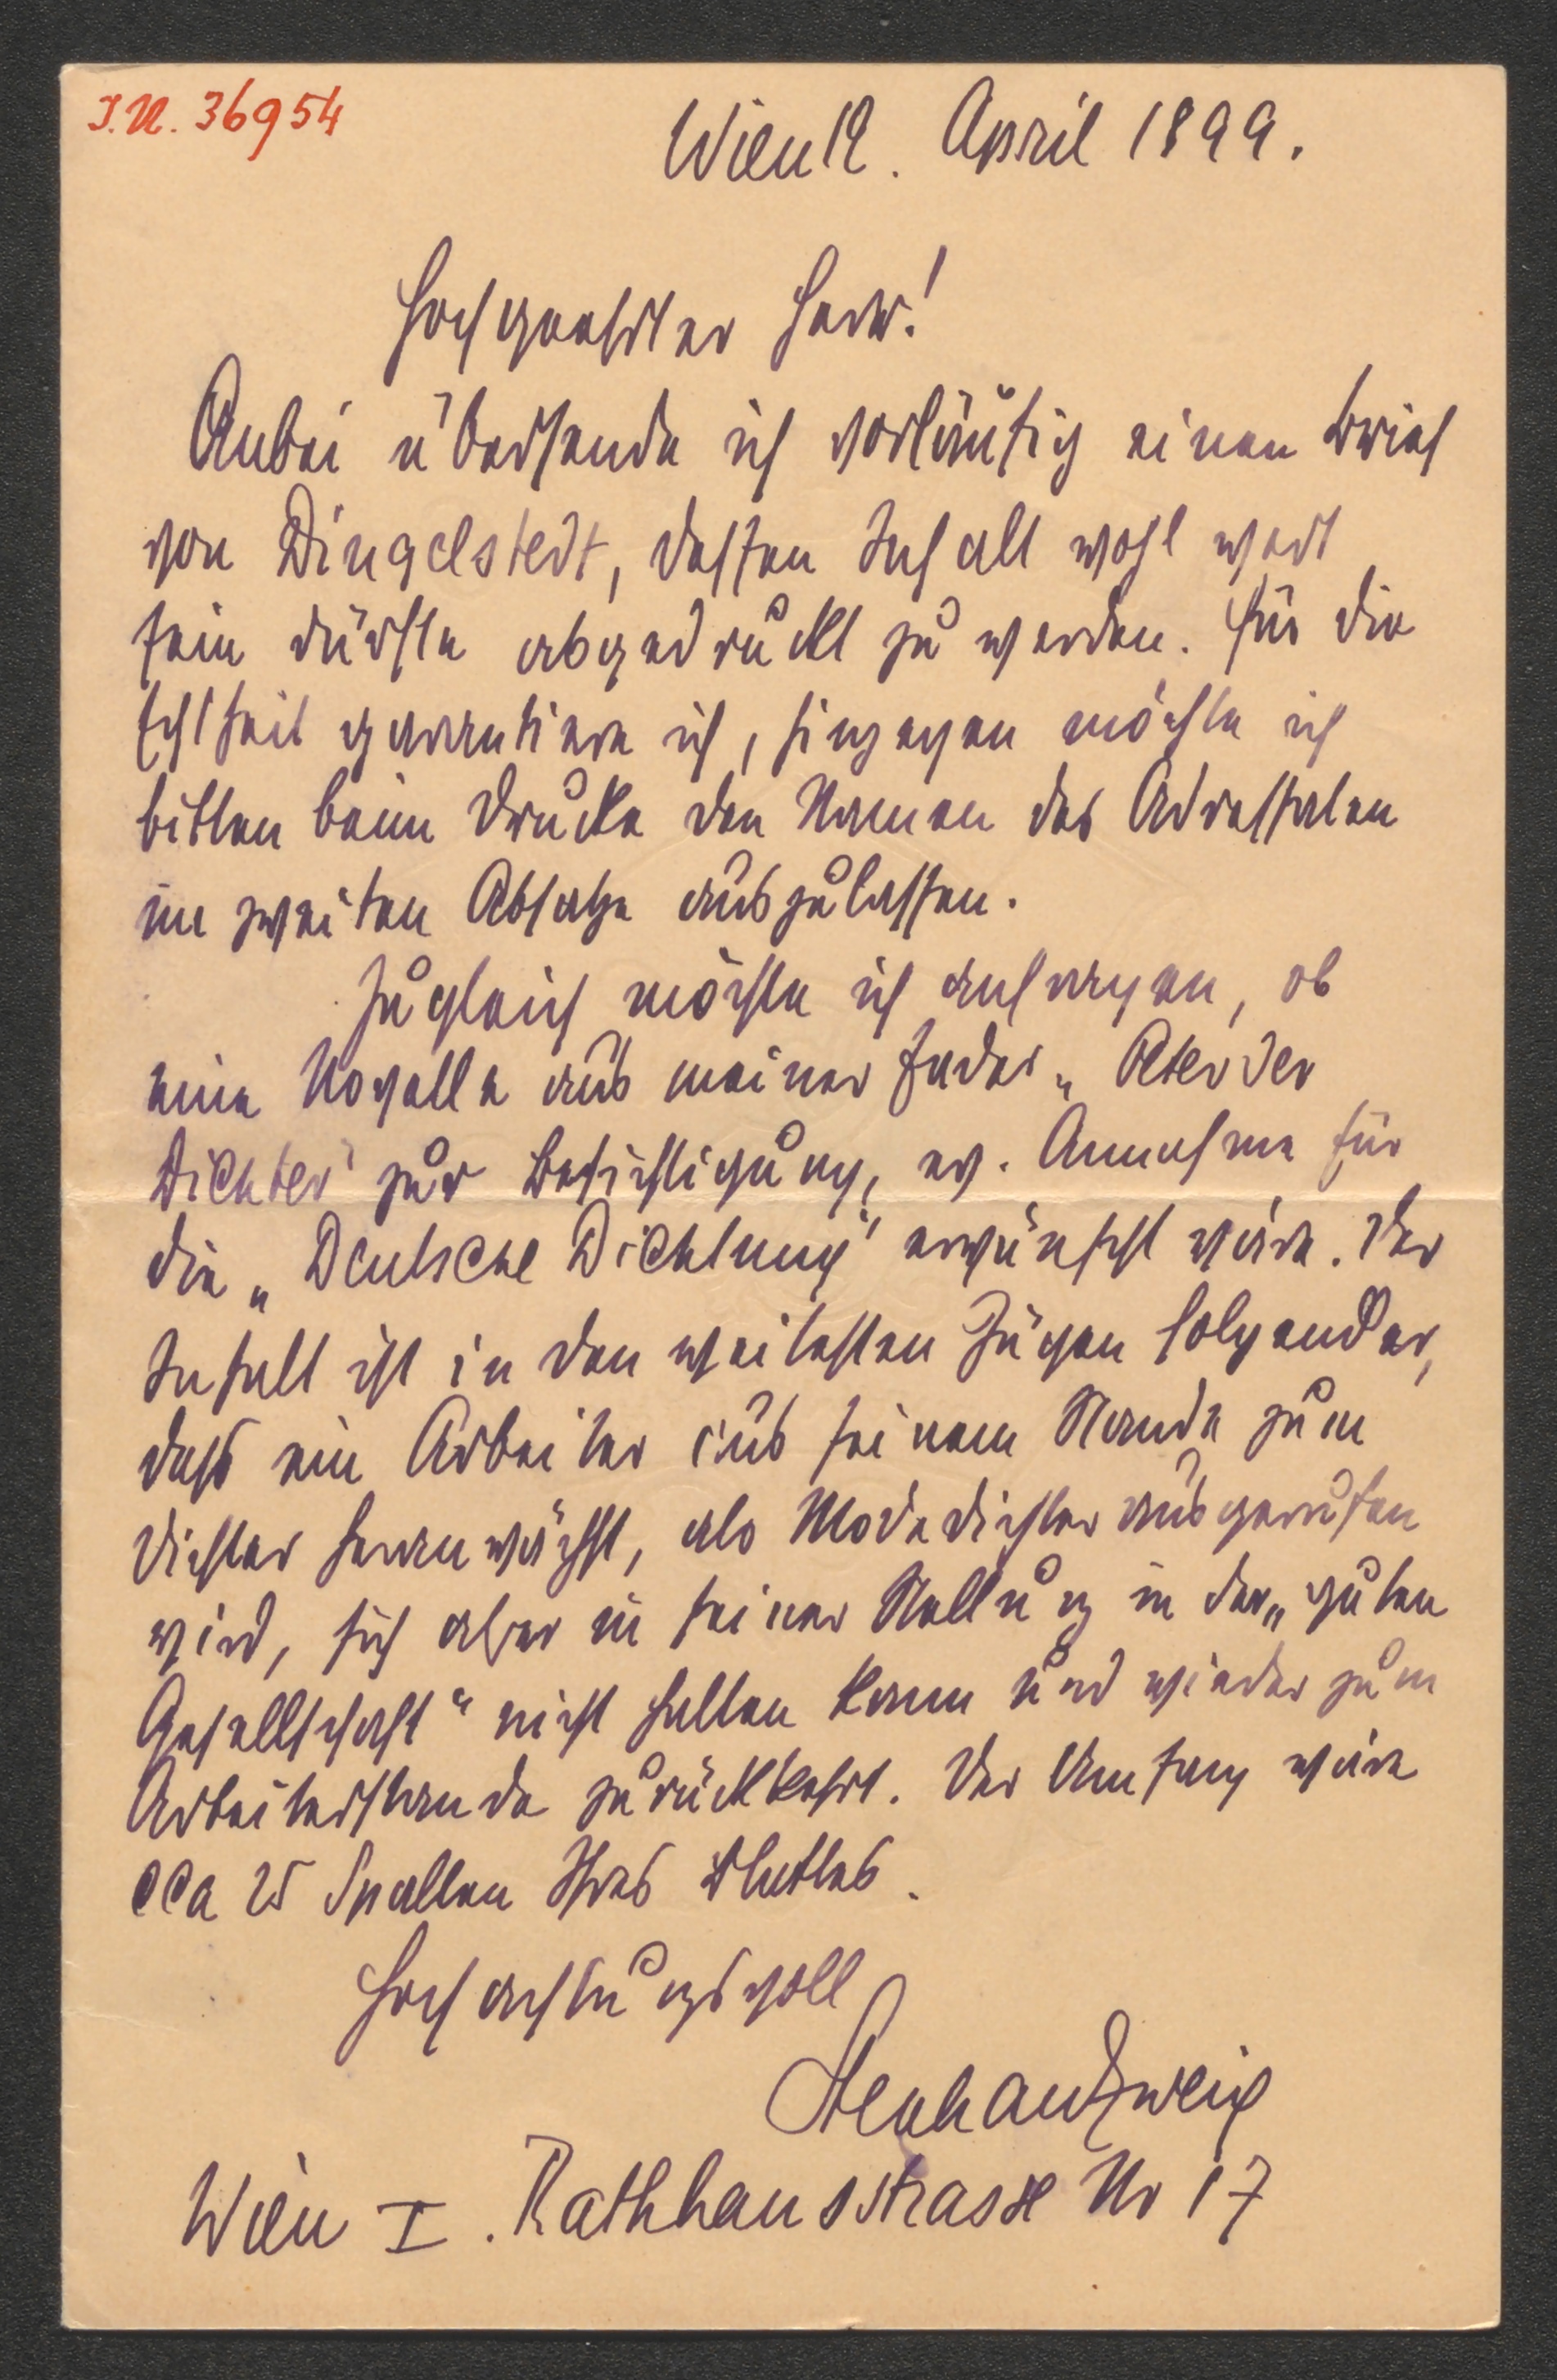 I.N. 36954
Wien 12. April 1899.
Hochgeehrter Herr!
Anbei übersende ich vorläufig einen Brief
von Dingelstedt, dessen Inhalt wohl wert
sein dürfte abgedruckt zu werden. Für die
Echtheit garantiere ich, hingegen möchte ich
bitten beim Drucke den Namen des Adressaten
im zweiten Absatze auszulassen.
Zugleich möchte ich anfragen, ob
eine Novelle aus meiner Feder „Peter der
Dichter" zur Besichtigung, ev. Annahme für
die „Deutsche Dichtung" erwünscht wäre. Der
Inhalt ist in den weitesten Zügen folgender,
dass ein Arbeiter aus seinem Stande zum
Dichter heranwächst, als Modedichter ausgerufen
wird, sich aber in seiner Stellung in der „guten
Gesellschaft" nicht halten kann und wieder zum
Arbeiterstande zurückkehrt. Der Umfang wäre
cca 25 Spalten Ihres Blattes.
Hochachtungsvoll
Stephan Zweig
Wien I. Rathhausstrasse Nr 17